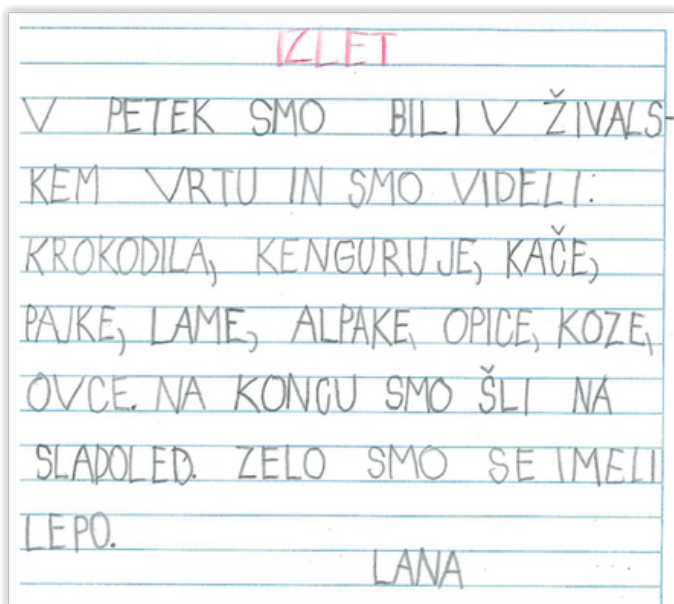 IZLET
V PETEK SMO BILI V ŽIVALS-
KEM VRTU IN SMO VIDELI:
KROKODILA, KENGURUJE, KAČE,
PAJKE, LAME, ALPAKE, OPICE, KOZE,
OVCE. NA KONCU SMO ŠLI NA
SLADOLED. ZELO SMO SE IMELI
LEPO.
LANA